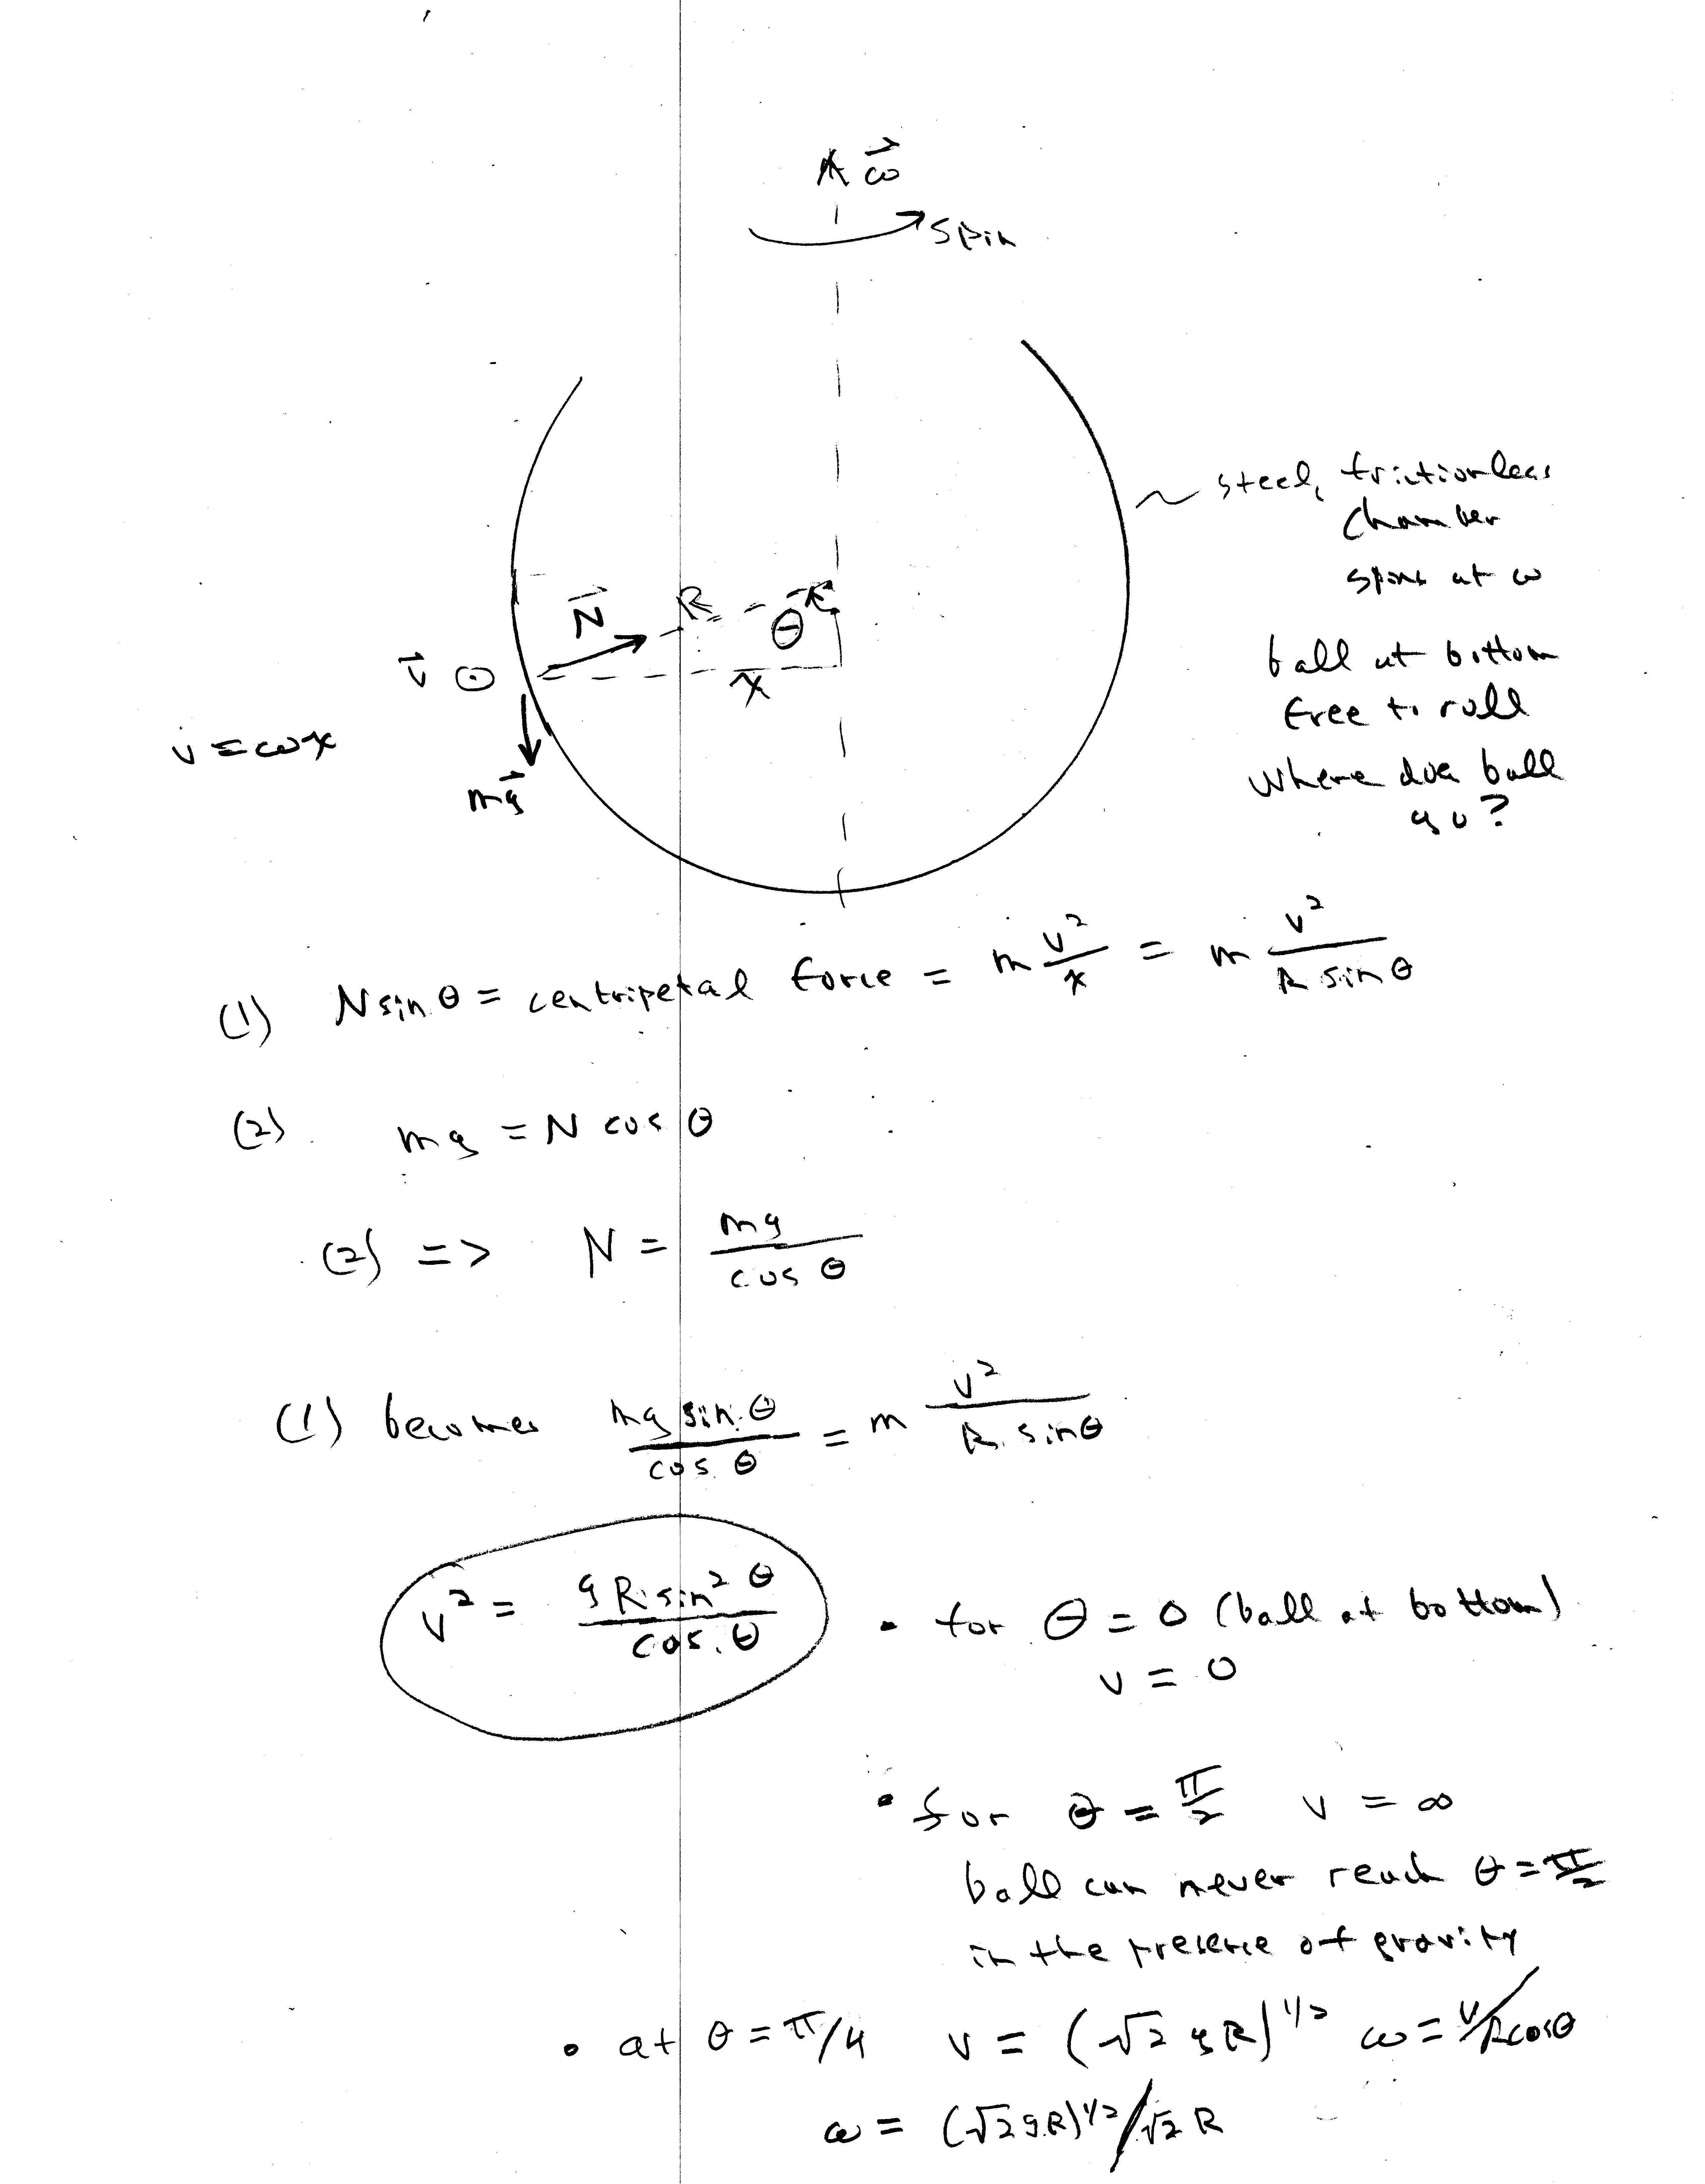 ω⃗
spin
steel, frictionless
chamber
spins at ω
N⃗ R θ
ball at bottom
free to roll
v⃗ ⊙ x
v = ωx
where does ball
go?
mg⃗
(1) N sin θ = centripetal force = m v²/x = m v²/(R sin θ)
(2) mg = N cos θ
(2) => N = mg/(cos θ)
(1) becomes (mg sin θ)/(cos θ) = m v²/(R sin θ)
v² = (g R sin² θ)/(cos θ)
• for θ = 0 (ball at bottom)
v = 0
• for θ = π/2 v = ∞
ball can never reach θ = π/2
in the presence of gravity
• at θ = π/4 v = (√2 g R)^1/2 ω = v/Rcosθ
ω = (√2 g R)^1/2/√2 R